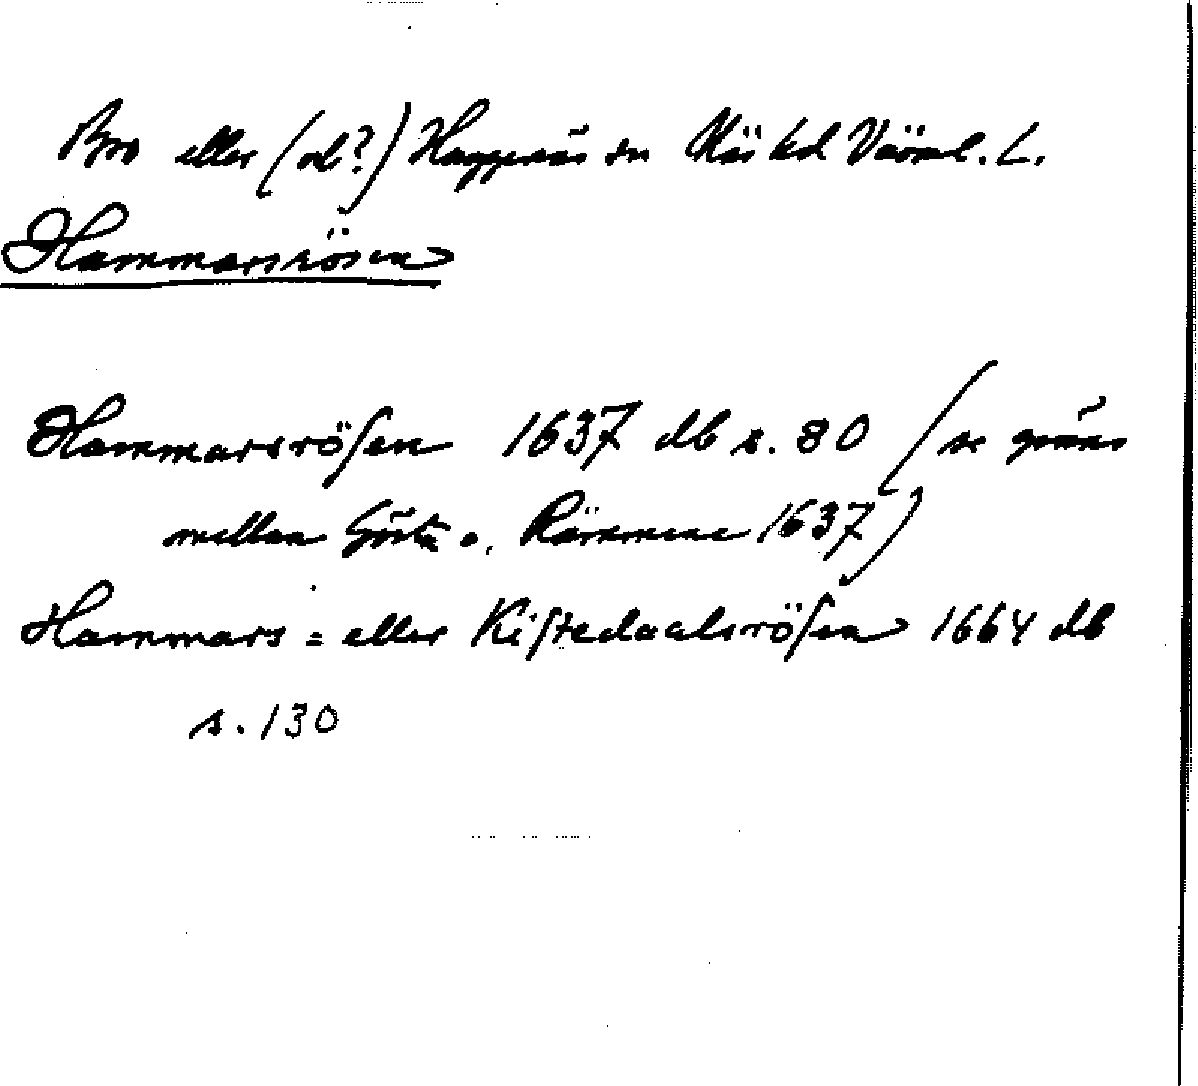 Bro eller (ol?) Huggenäs sn Näs hd Värml. L.
Hammarsrösen
Hammarsrösen 1637 db s. 80 (se gräns
mellan Gösta o. Rämmene 1637)
Hammars = eller Kistedaalsrösen 1664 db
s. 130